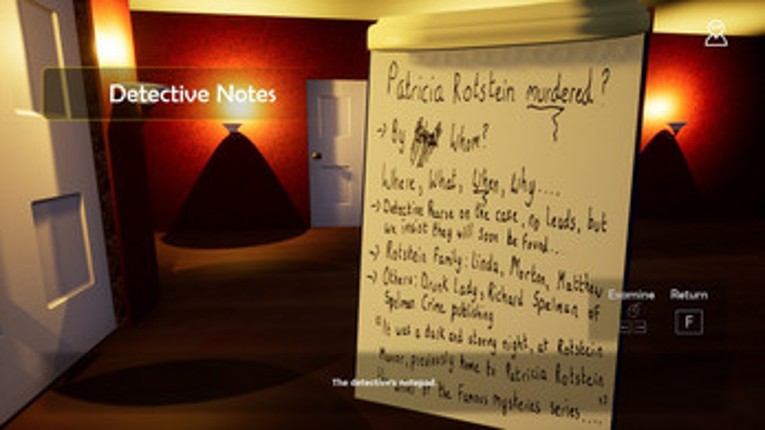 Detective Notes
Patricia Rotstein murdered?
-> By Whom?
Where, What, When, Why....
-> Detective Pearse on the case, no leads, but
we insist they will soon be found...
-> Rotstein Family: Linda, Morton, Matthew
-> Others: Drunk Lady, Richard Spelman of
Spelman Crime publishing
"It was a dark and stormy night, at Rotstein
Manor, previously home to Patricia Rotstein
writer of the Famous Mysteries series...."
Examine Return
F
The detective's notepad.